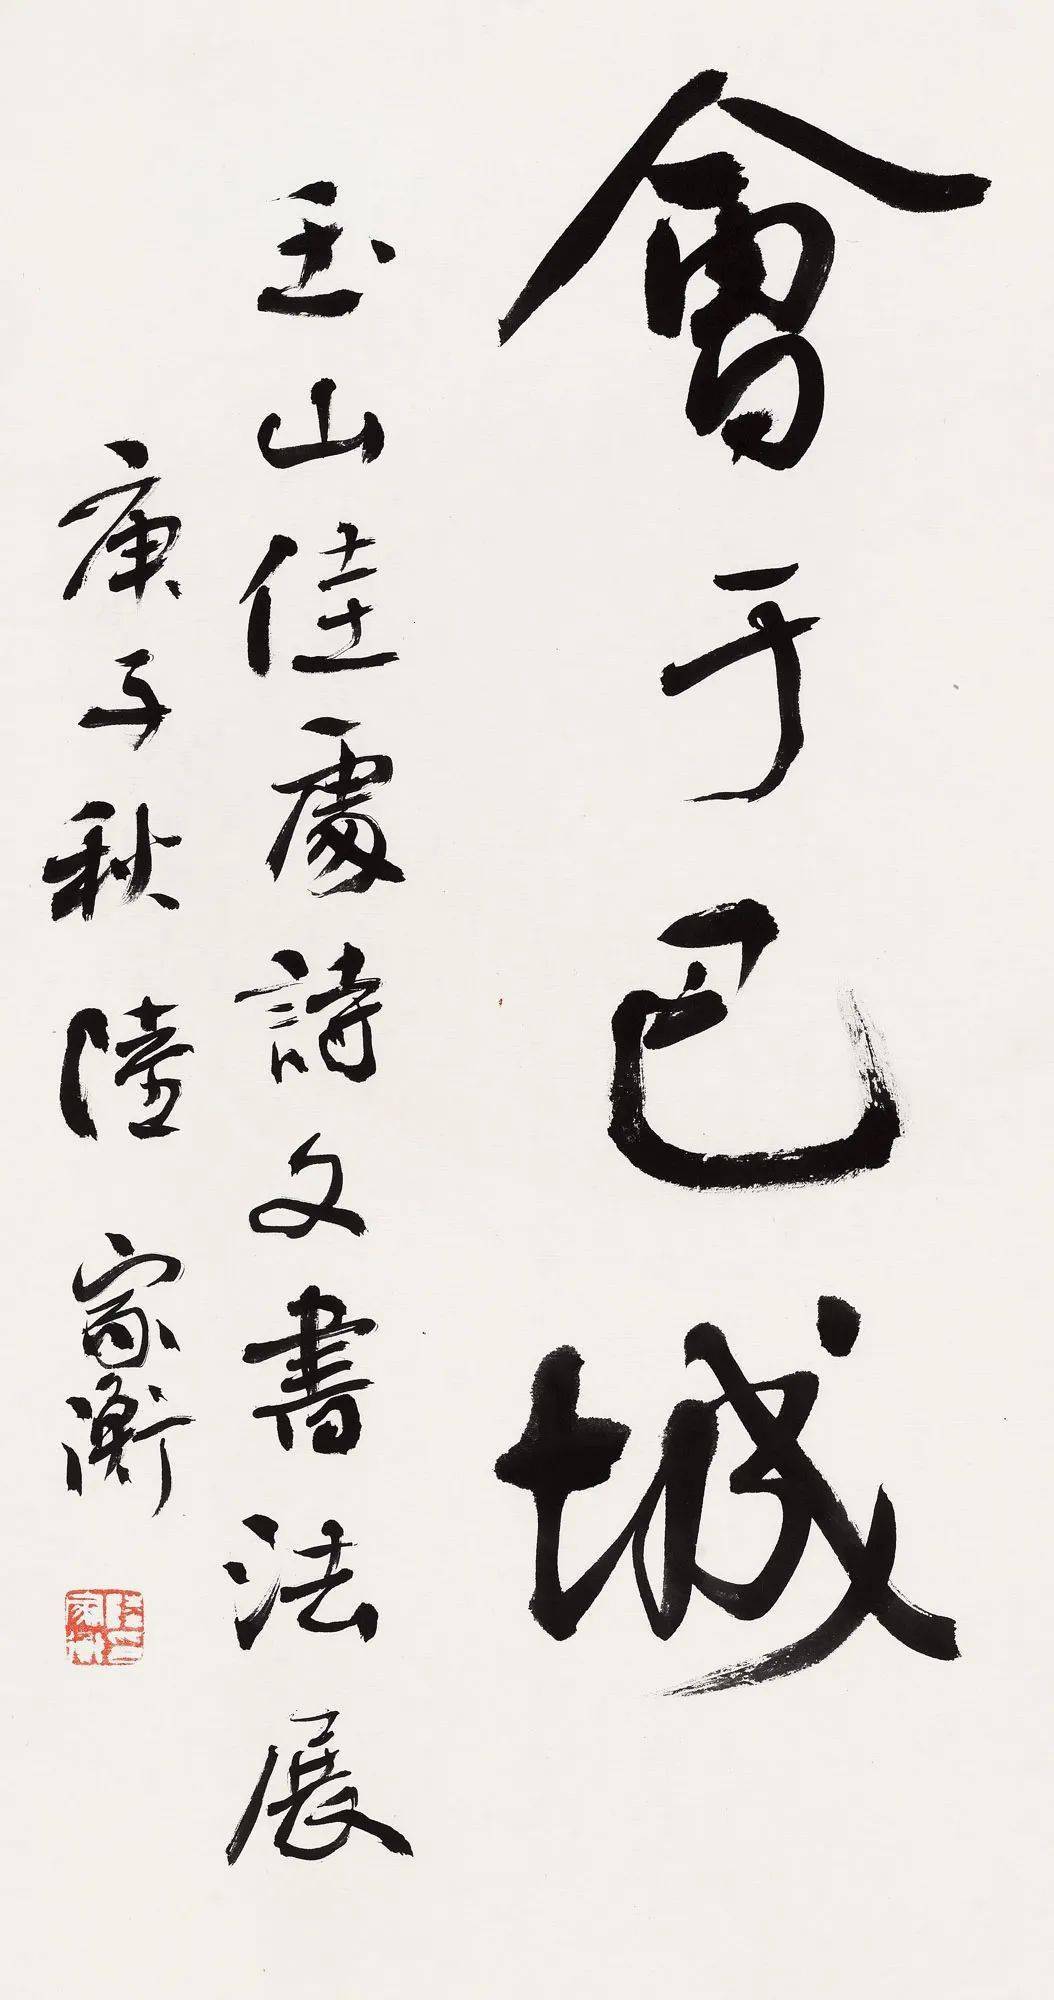 會于巴城
玉山佳處詩文書法展
庚子秋陸家衡